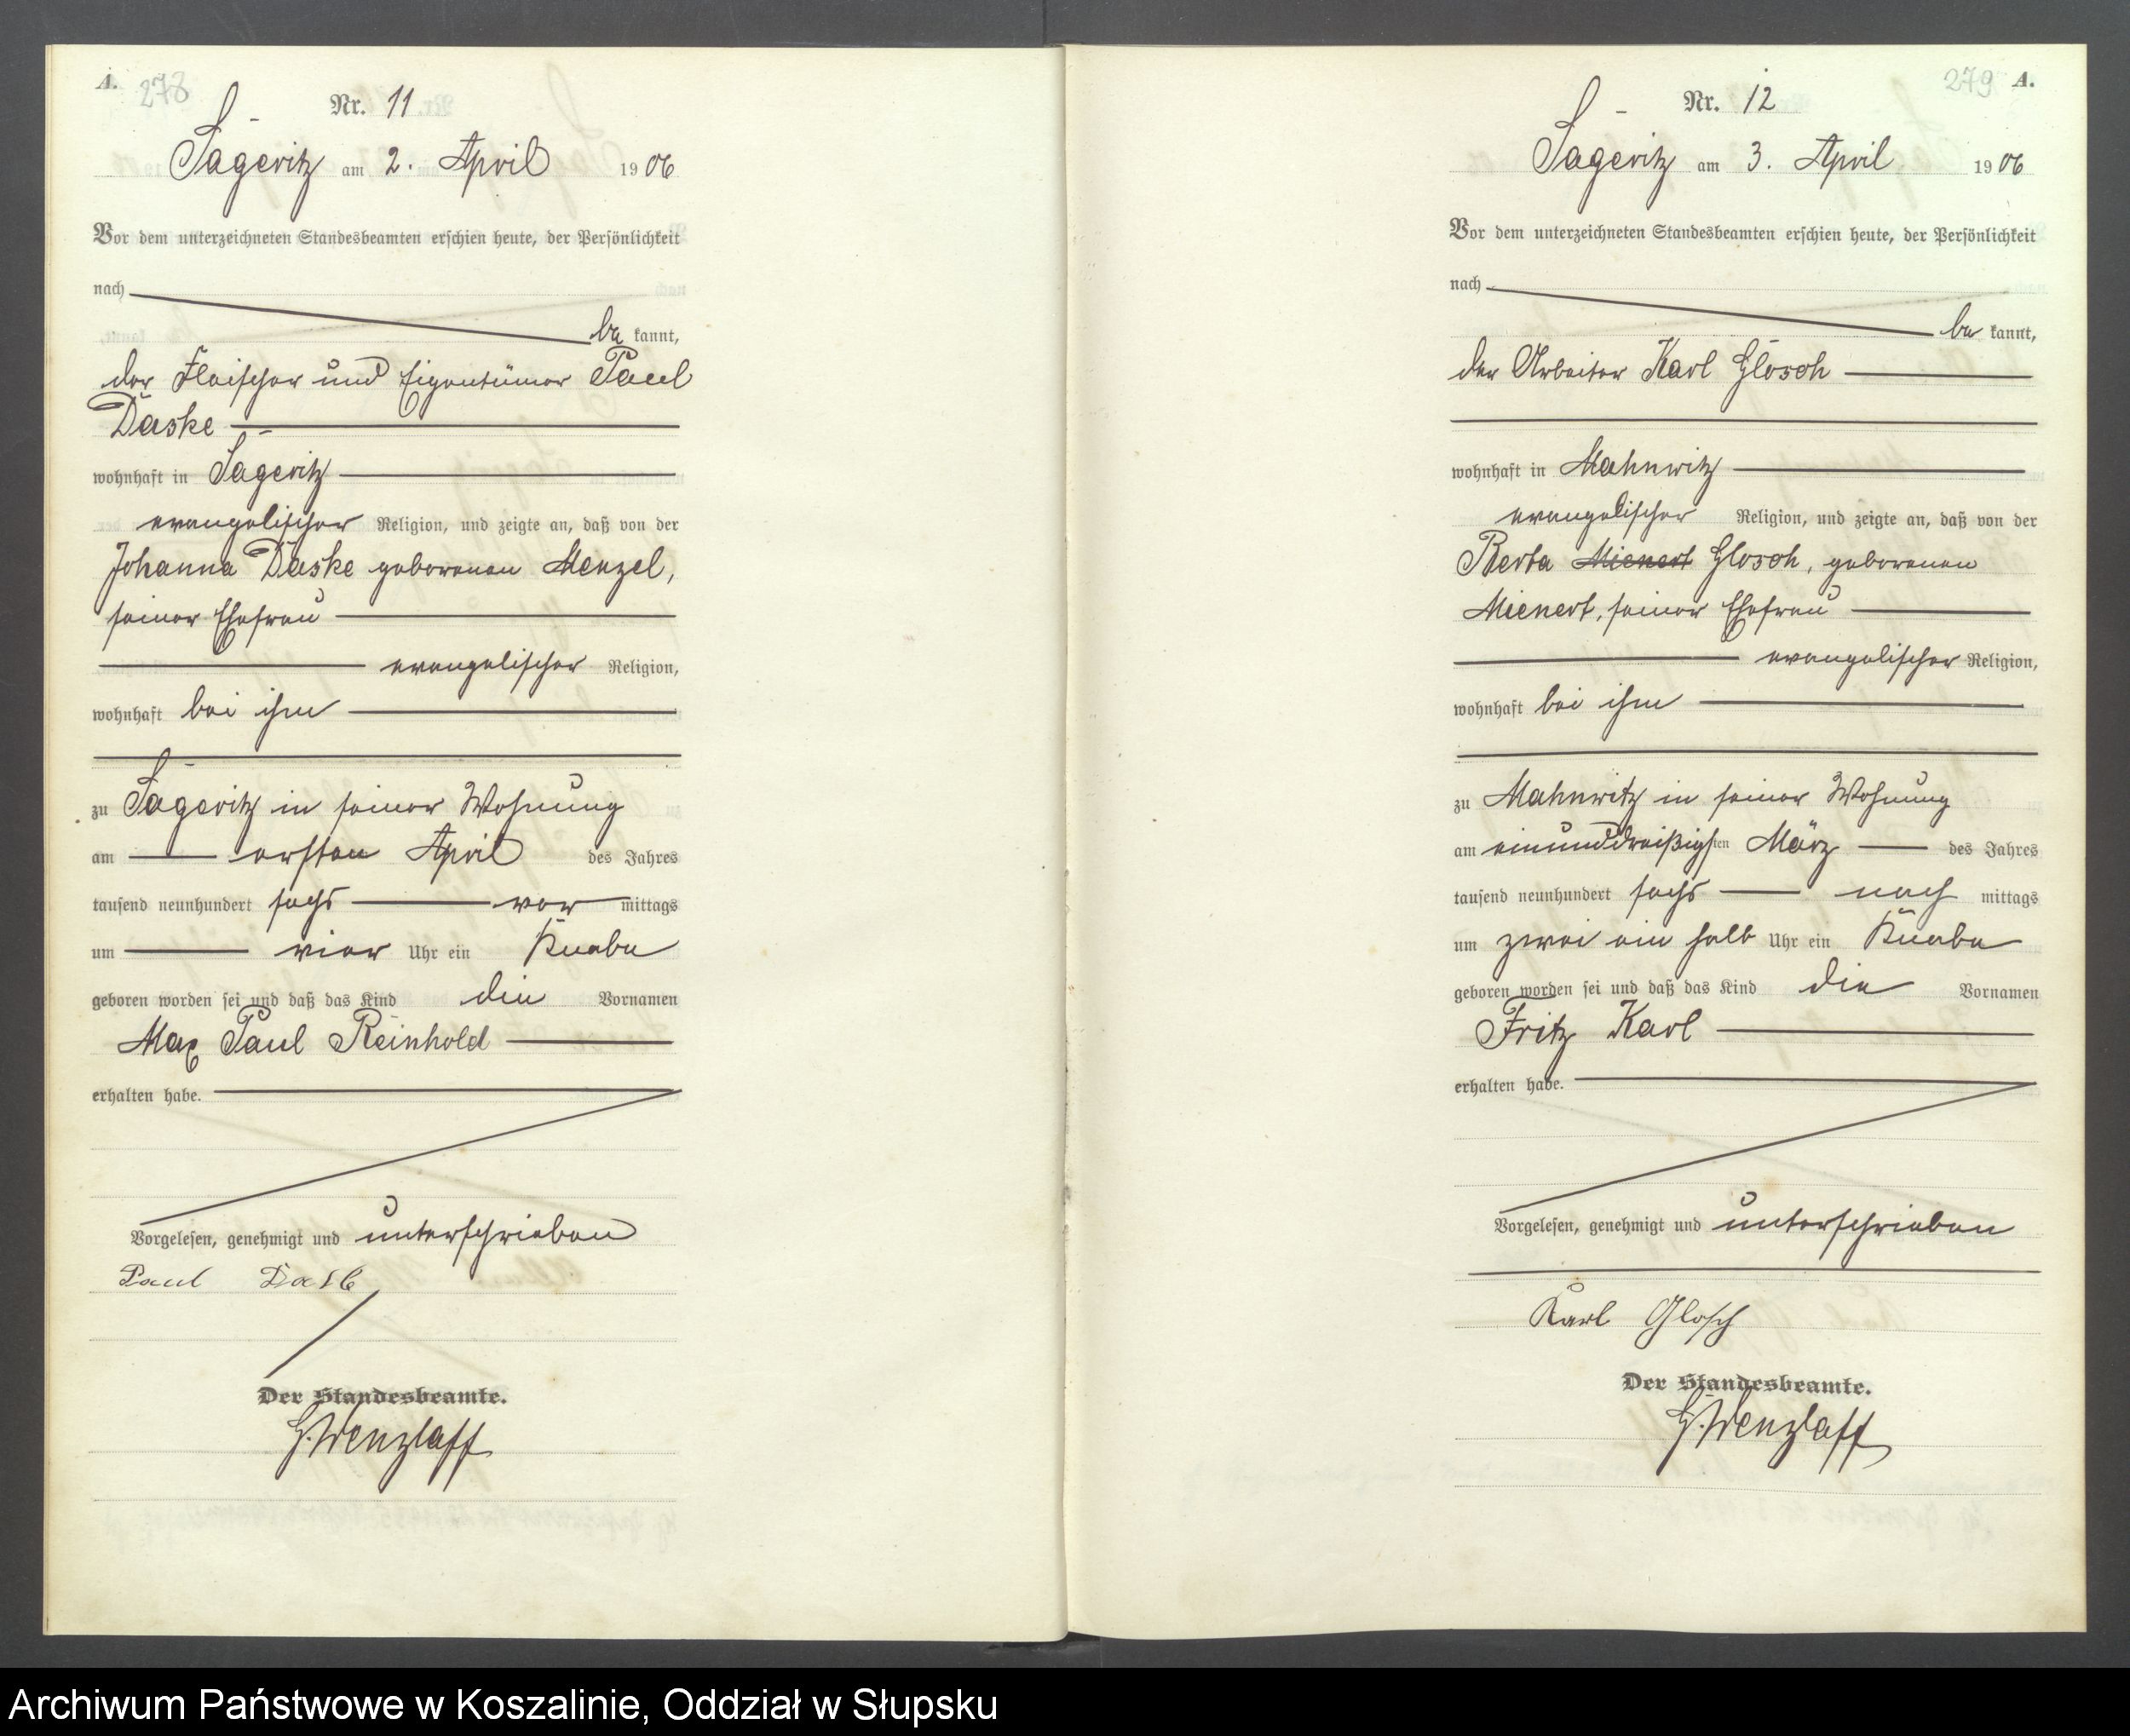 A. 278
Nr. 11
Sageritz am 2. April 1906
Vor dem unterzeichneten Standesbeamten erschien heute, der Persönlichkeit
nach
be kannt,
der Fleischer und Eigentümer Paul
Daske
wohnhaft in Sageritz
evangelischer Religion, und zeigte an, daß von der
Johanna Daske geborenen Menzel,
seiner Ehefrau
evangelischer Religion,
wohnhaft bei ihm
zu Sageritz in seiner Wohnung
am ersten April des Jahres
tausend neunhundert sechs vor mittags
um vier Uhr ein Knabe
geboren worden sei und daß das Kind die Vornamen
Max Paul Reinhold
erhalten habe.
Vorgelesen, genehmigt und unterschrieben
Paul
Der Standesbeamte.
G. Wenzlaff
279 A.
Nr. 12
Sageritz am 3. April 1906
Vor dem unterzeichneten Standesbeamten erschien heute, der Persönlichkeit
nach
be kannt,
der Arbeiter Karl Glosch
wohnhaft in Mahnwitz
evangelischer Religion, und zeigte an, daß von der
Berta Mienert Glosch, geborenen
Mienert, seiner Ehefrau
evangelischer Religion,
wohnhaft bei ihm
zu Mahnwitz in seiner Wohnung
am einunddreißigsten März des Jahres
tausend neunhundert sechs nach mittags
um zwei ein halb Uhr ein Knabe
geboren worden sei und daß das Kind die Vornamen
Fritz Karl
erhalten habe.
Vorgelesen, genehmigt und unterschrieben
Karl Glosch
Der Standesbeamte.
G. Wenzlaff
Archiwum Państwowe w Koszalinie, Oddział w Słupsku